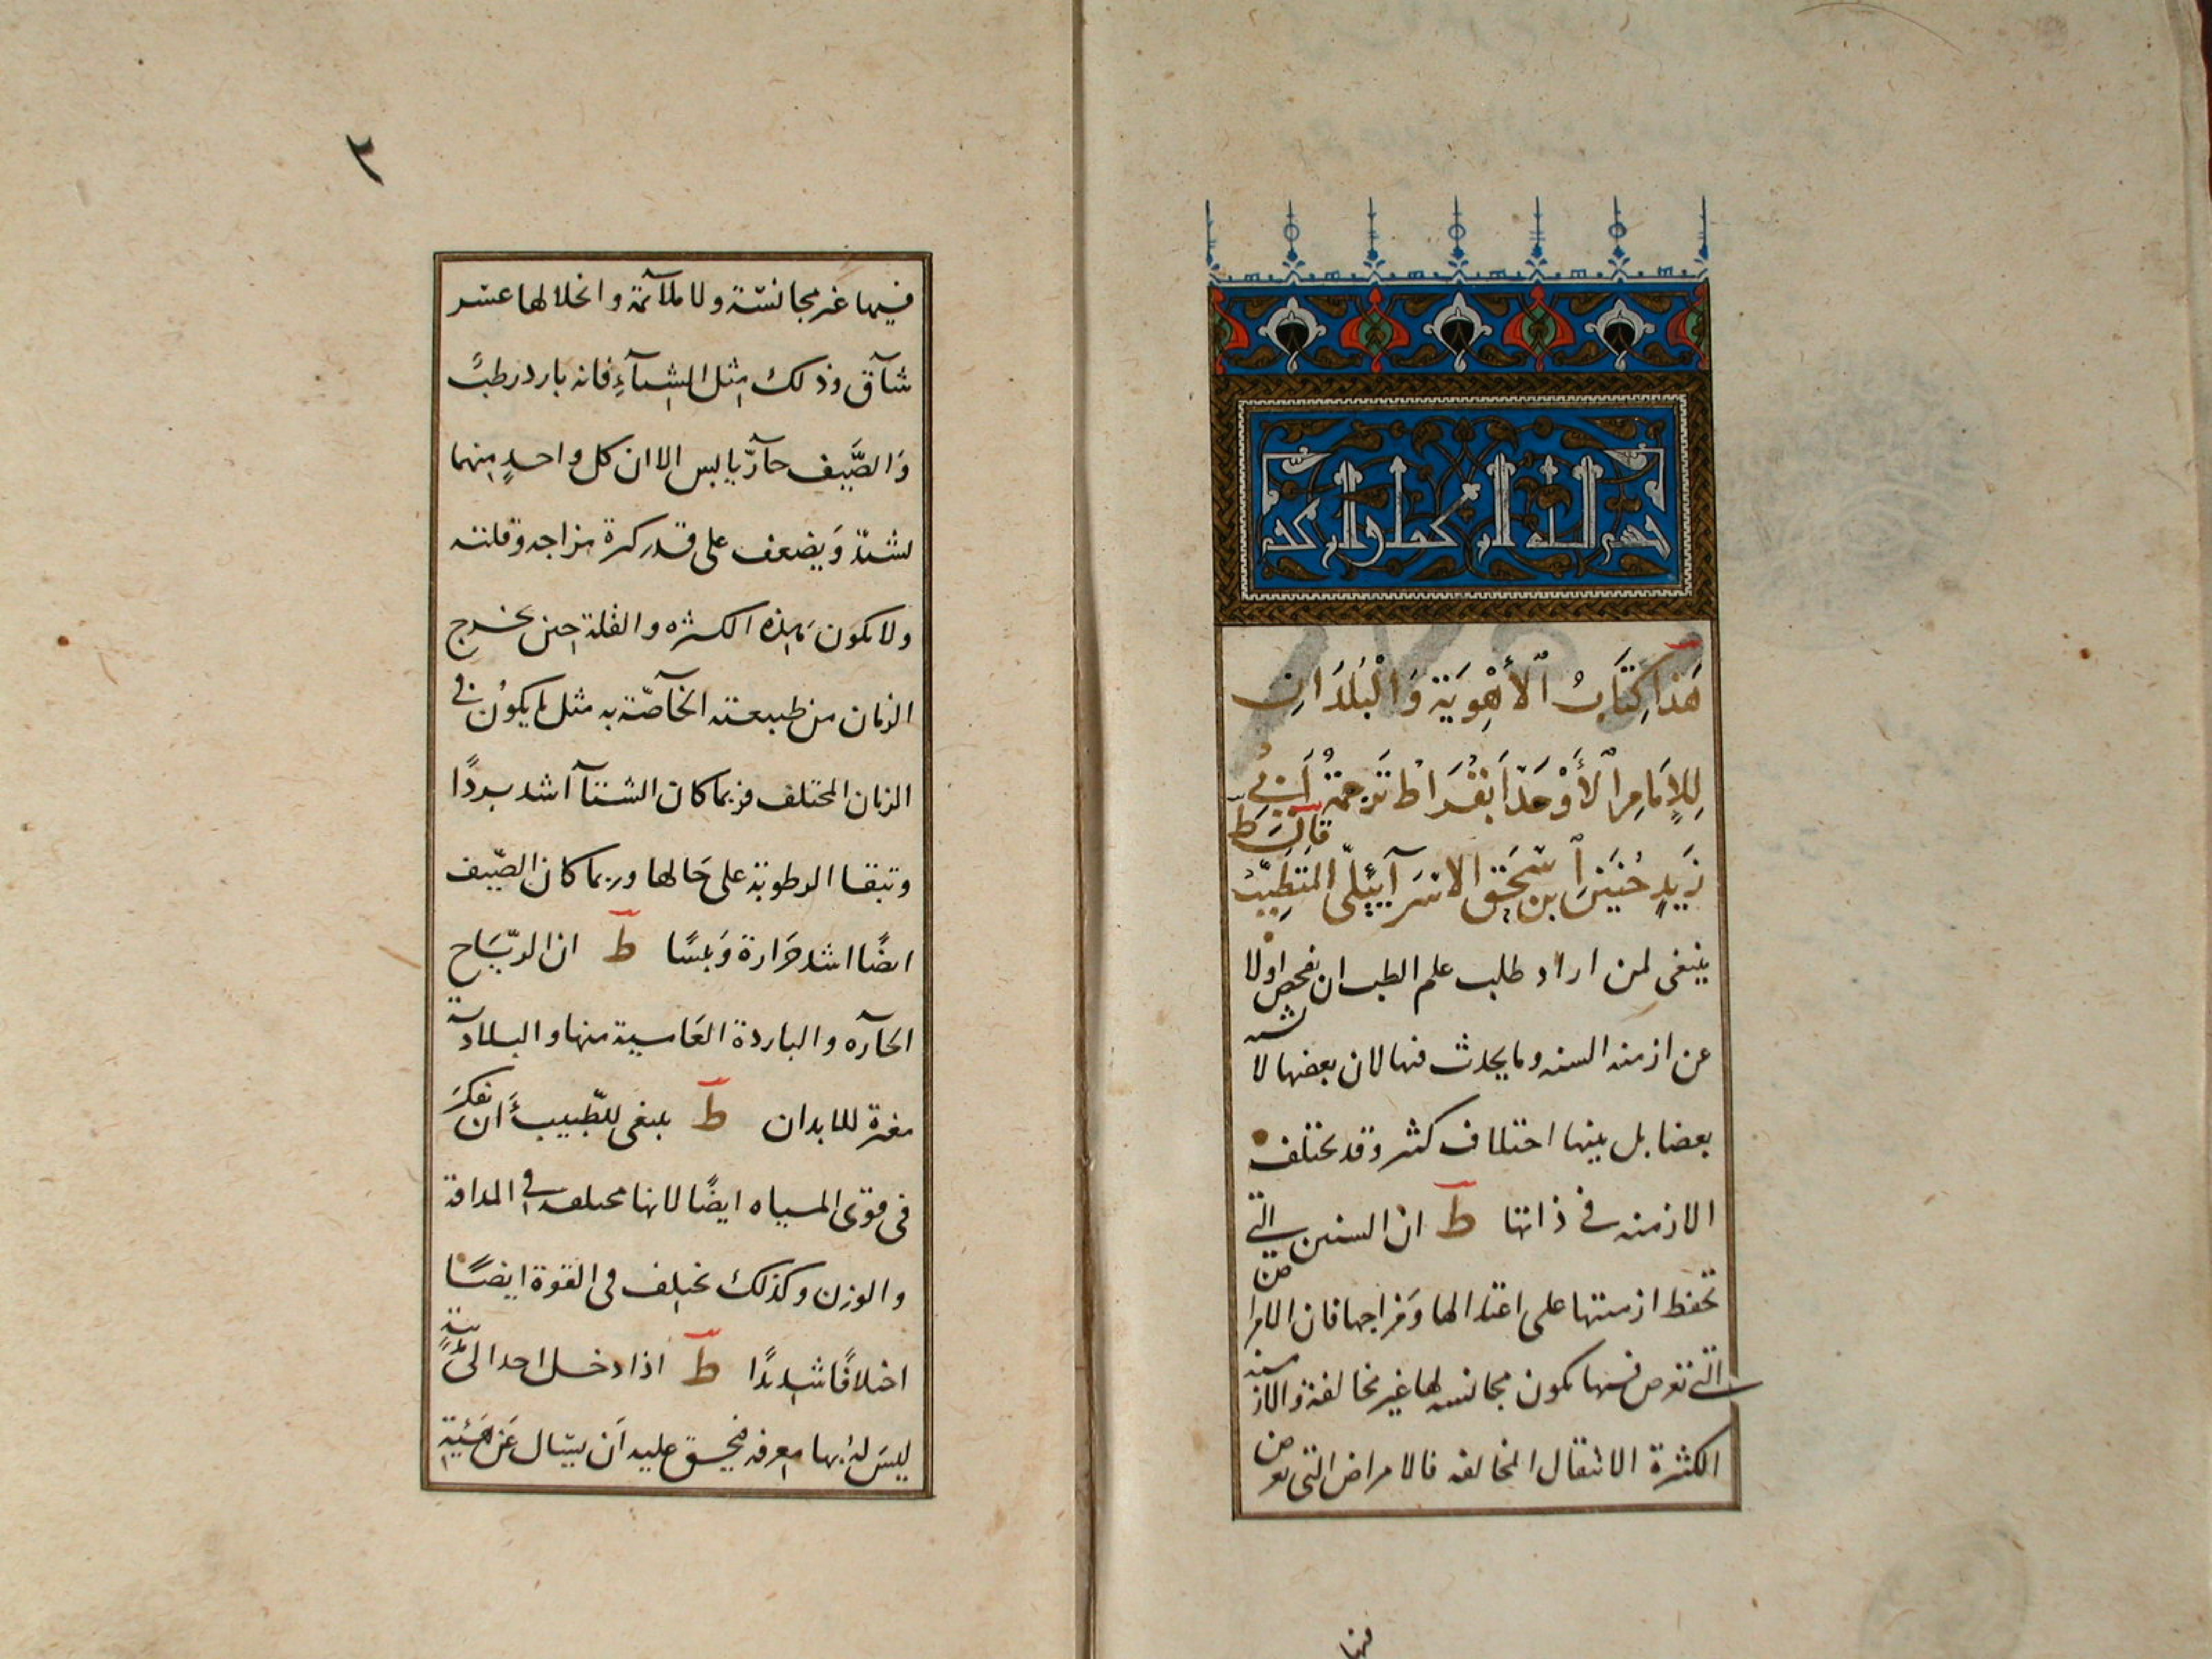 هَذا كِتَابُ الأَهْوِيَةِ وَالْبُلْدَانِ
لِلإمَامِ الأَوْحَدِ ابُقْرَاط تَرْجَمَةُ أَبي
زَيدٍ حُنَين ابن سْحَق الاسرَآئيِلّي المُتَطَبِّبُ قالَ ط
ينبغى لمن اراد طلب علم الطب ان يفحص اولا
عن ازمنه السنه وما يحدث فيها لان بعضها لا يشبه
بعضا بل بينها اختلاف كثير وقد يختلف
الازمنه في ذاتها ط ان السنين التي
تحفظ ازمنتها على اعتدالها وَمزاجها فان الامراض
التى تعرض فيها يكون مجانسه لها غير مخالفة والازمنه
الكثيرة الانتقال المخالفه فالامراض التى تعرض
فيها
٢
فيها غير مجانسَة ولا ملآئمة وانحلالها عسر
شآق وذلك مثل الشتآءِ فانه بارد رطبٌ
وَالصَّيف حآرّ يابس الا ان كل واحدٍ منهما
يشتدّ وَيضعف على قدر كثرة مزاجه وقلته
ولا يكون هذه الكثره والقلة حين يخرج
الزمان من طبيعته الخآصّة به مثل ما يكوُن في
الزمان المختلف فربما كان الشتآ اشد بردًا
وتبقا الرطوبة على حَالها وربما كان الصّيف
ايضًا اشد حَرارة وَيبسًا ط ان الريَّاح
الحآره والباردة العَامية منها والبلادية
مغيرة للابدان ط ينبغى للّطبيب أَن يفكرَ
فى قوى المياه ايضًا لانها مختلفه في المذاقة
والوزن وكذلك يختلف فى القوة ايضًا
اختلافًا شديدًا ط اذا دخل احد الى مدينةٍ
ليسَ لهُ بها معرفه فيحق عليه اَن يسَال عَن هَيئَةِ